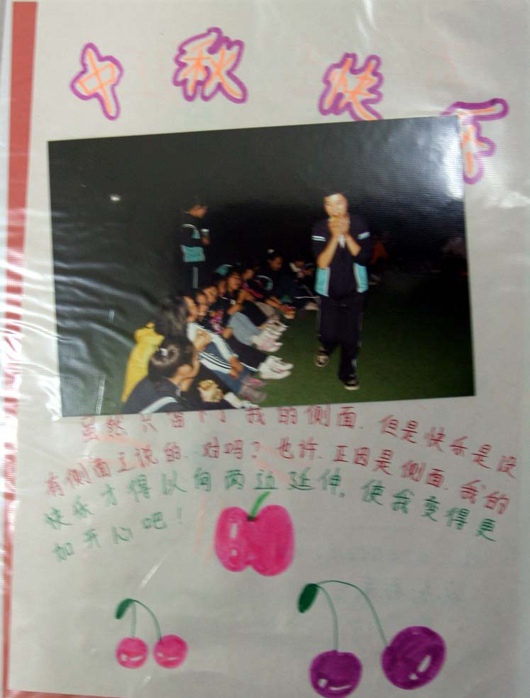 中秋快乐
虽然只留下了我的侧面,但是快乐是没
有侧面之说的.对吗?也许.正因是侧面,我的
快乐才得以向两边延伸。使我变得更
加开心吧!